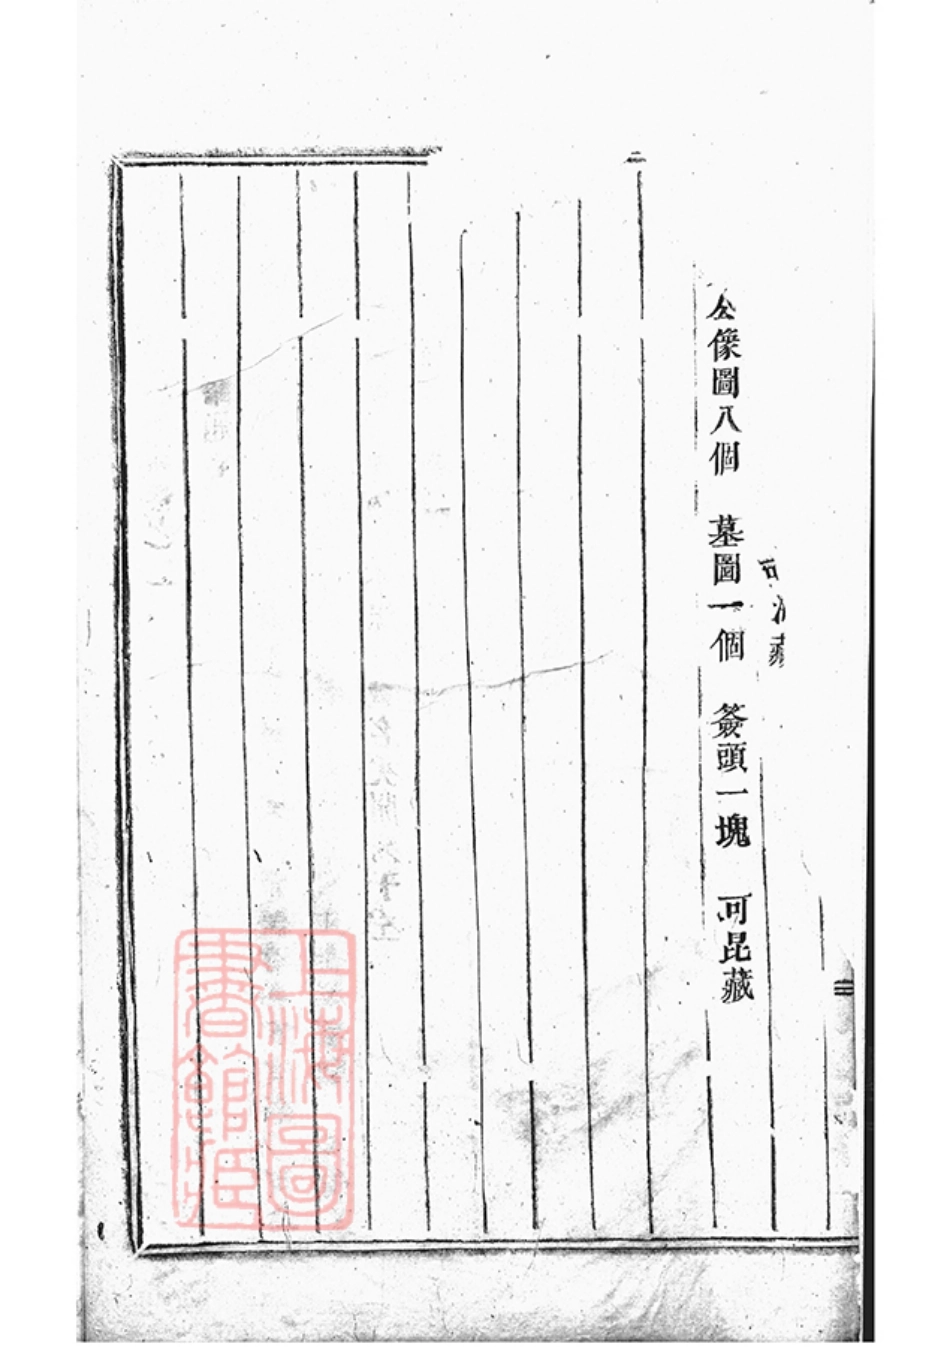 公像圖八個　墓圖一個　簽頭一塊　可昆藏
三
上海圖
書館藏